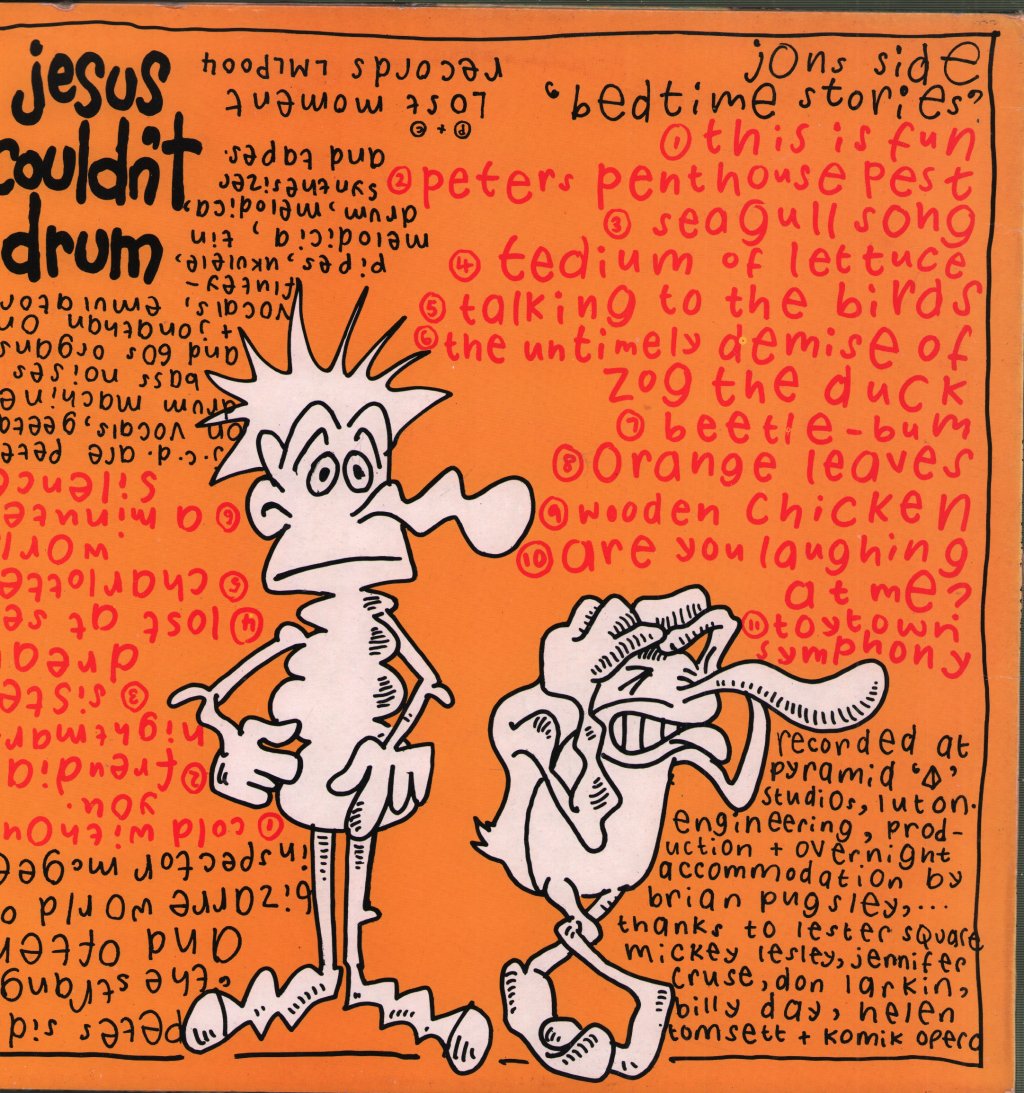 jesus
couldn't
drum
jons side
'bedtime stories'
① this is fun
② peters penthouse pest
③ seagull song
④ tedium of lettuce
⑤ talking to the birds
⑥ the untimely demise of
zog the duck
⑦ beetle-bum
⑧ orange leaves
⑨ wooden chicken
⑩ are you laughing
at me?
⑪ toytown
symphony
recorded at
pyramid '△'
studios, luton.
engineering, prod-
uction + overnight
accommodation by
brian pugsley,...
thanks to lester square
mickey lesley, jennifer
cruse, don larkin,
billy day, helen
tomsett + komik opera
petes sid
'the strang
and often
bizarre world o
inspector mcgee
① cold withou
you.
② frendia
nightmar
③ siste
drea
④ lost at se
⑤ charlotte
worl
⑥ a minute
silence
j.c.d. are pete
on vocals, geeta
drum machine
bass noises
and 60s organs
+ jonathan on
vocals, emulator
flutey-
pipes, ukulele,
melodicia, tin
drum, melodica,
synthesizer
and tapes.
Ⓟ + ©
Lost moment
records LMLP004